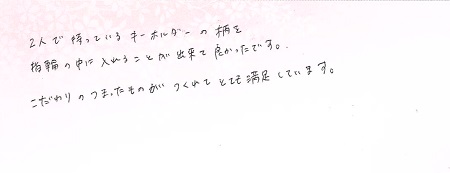 2人で持っているキーホルダーの柄を
指輪の中に入れることが出来て良かったです。
こだわりのつまったものがつくれてとても満足しています。